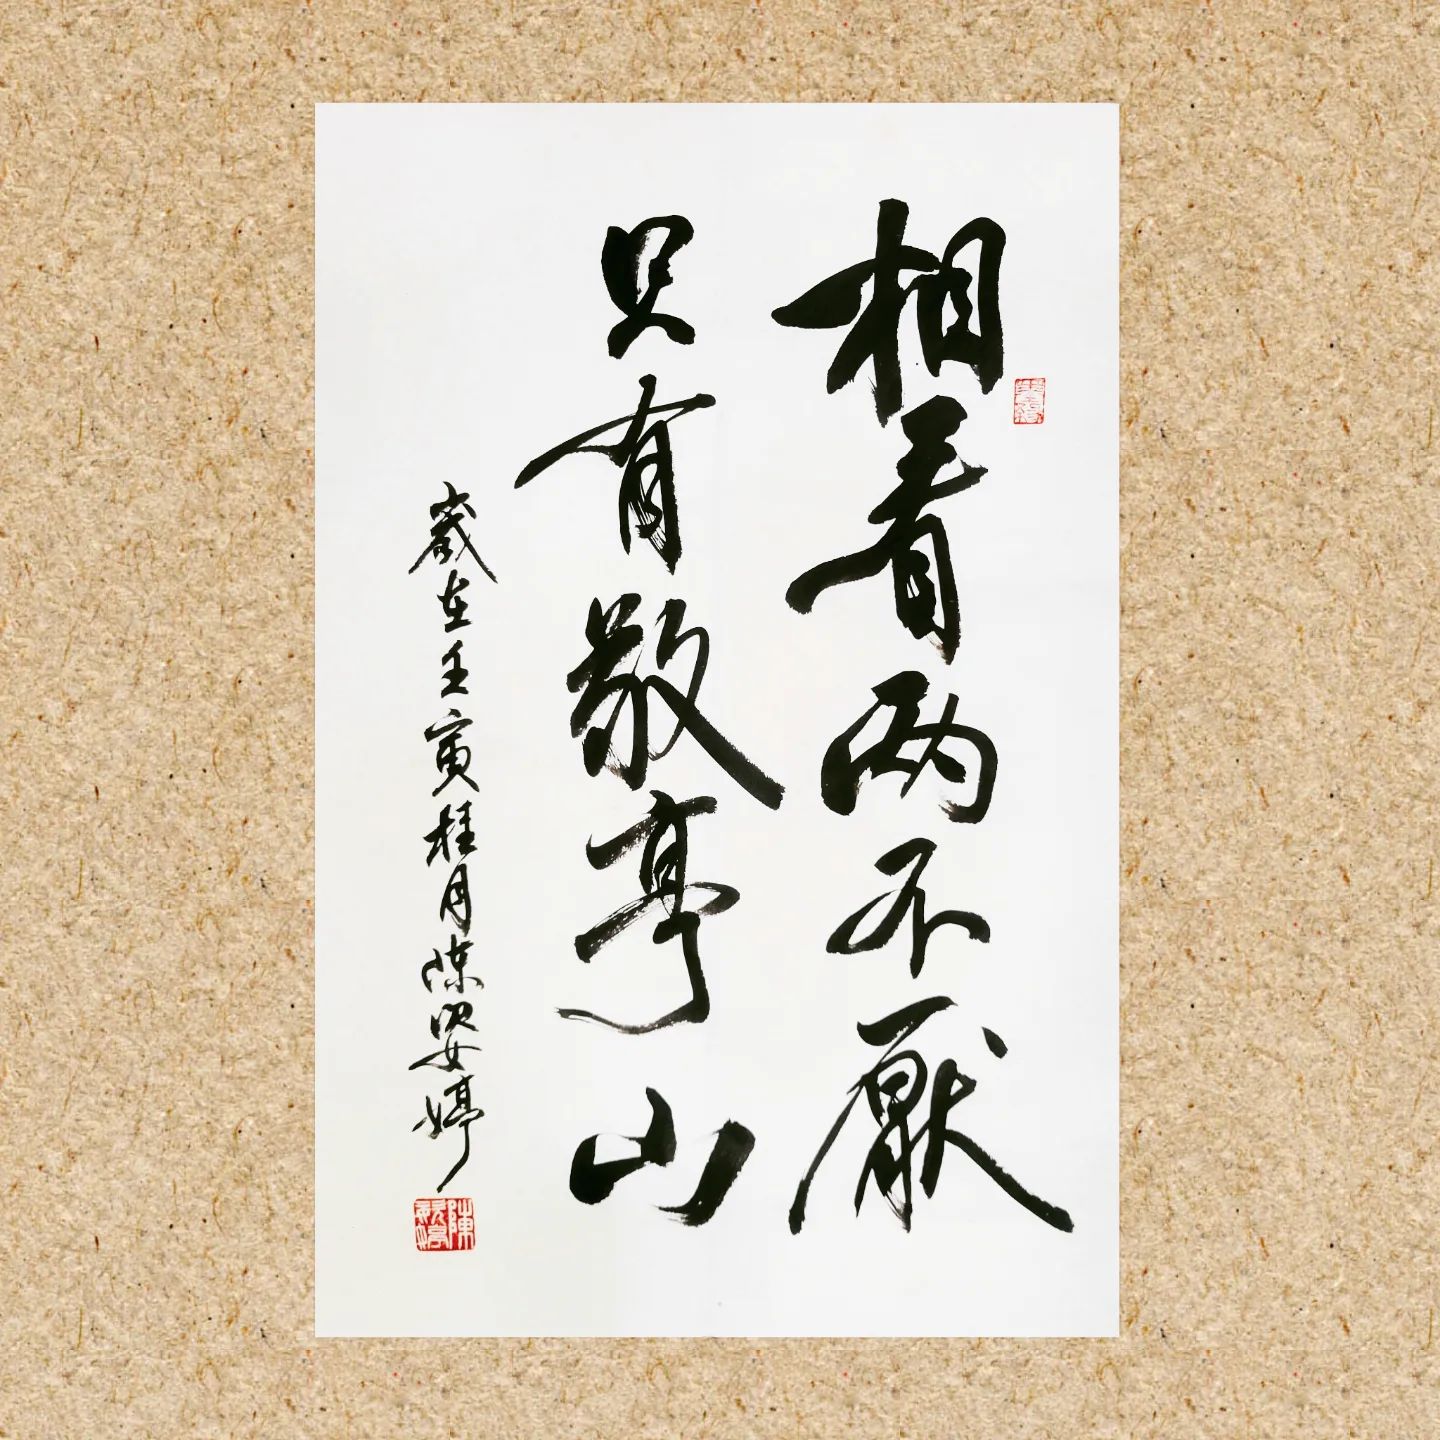 相看兩不厭
只有敬亭山
歲在壬寅桂月陳姿婷
陳姿婷